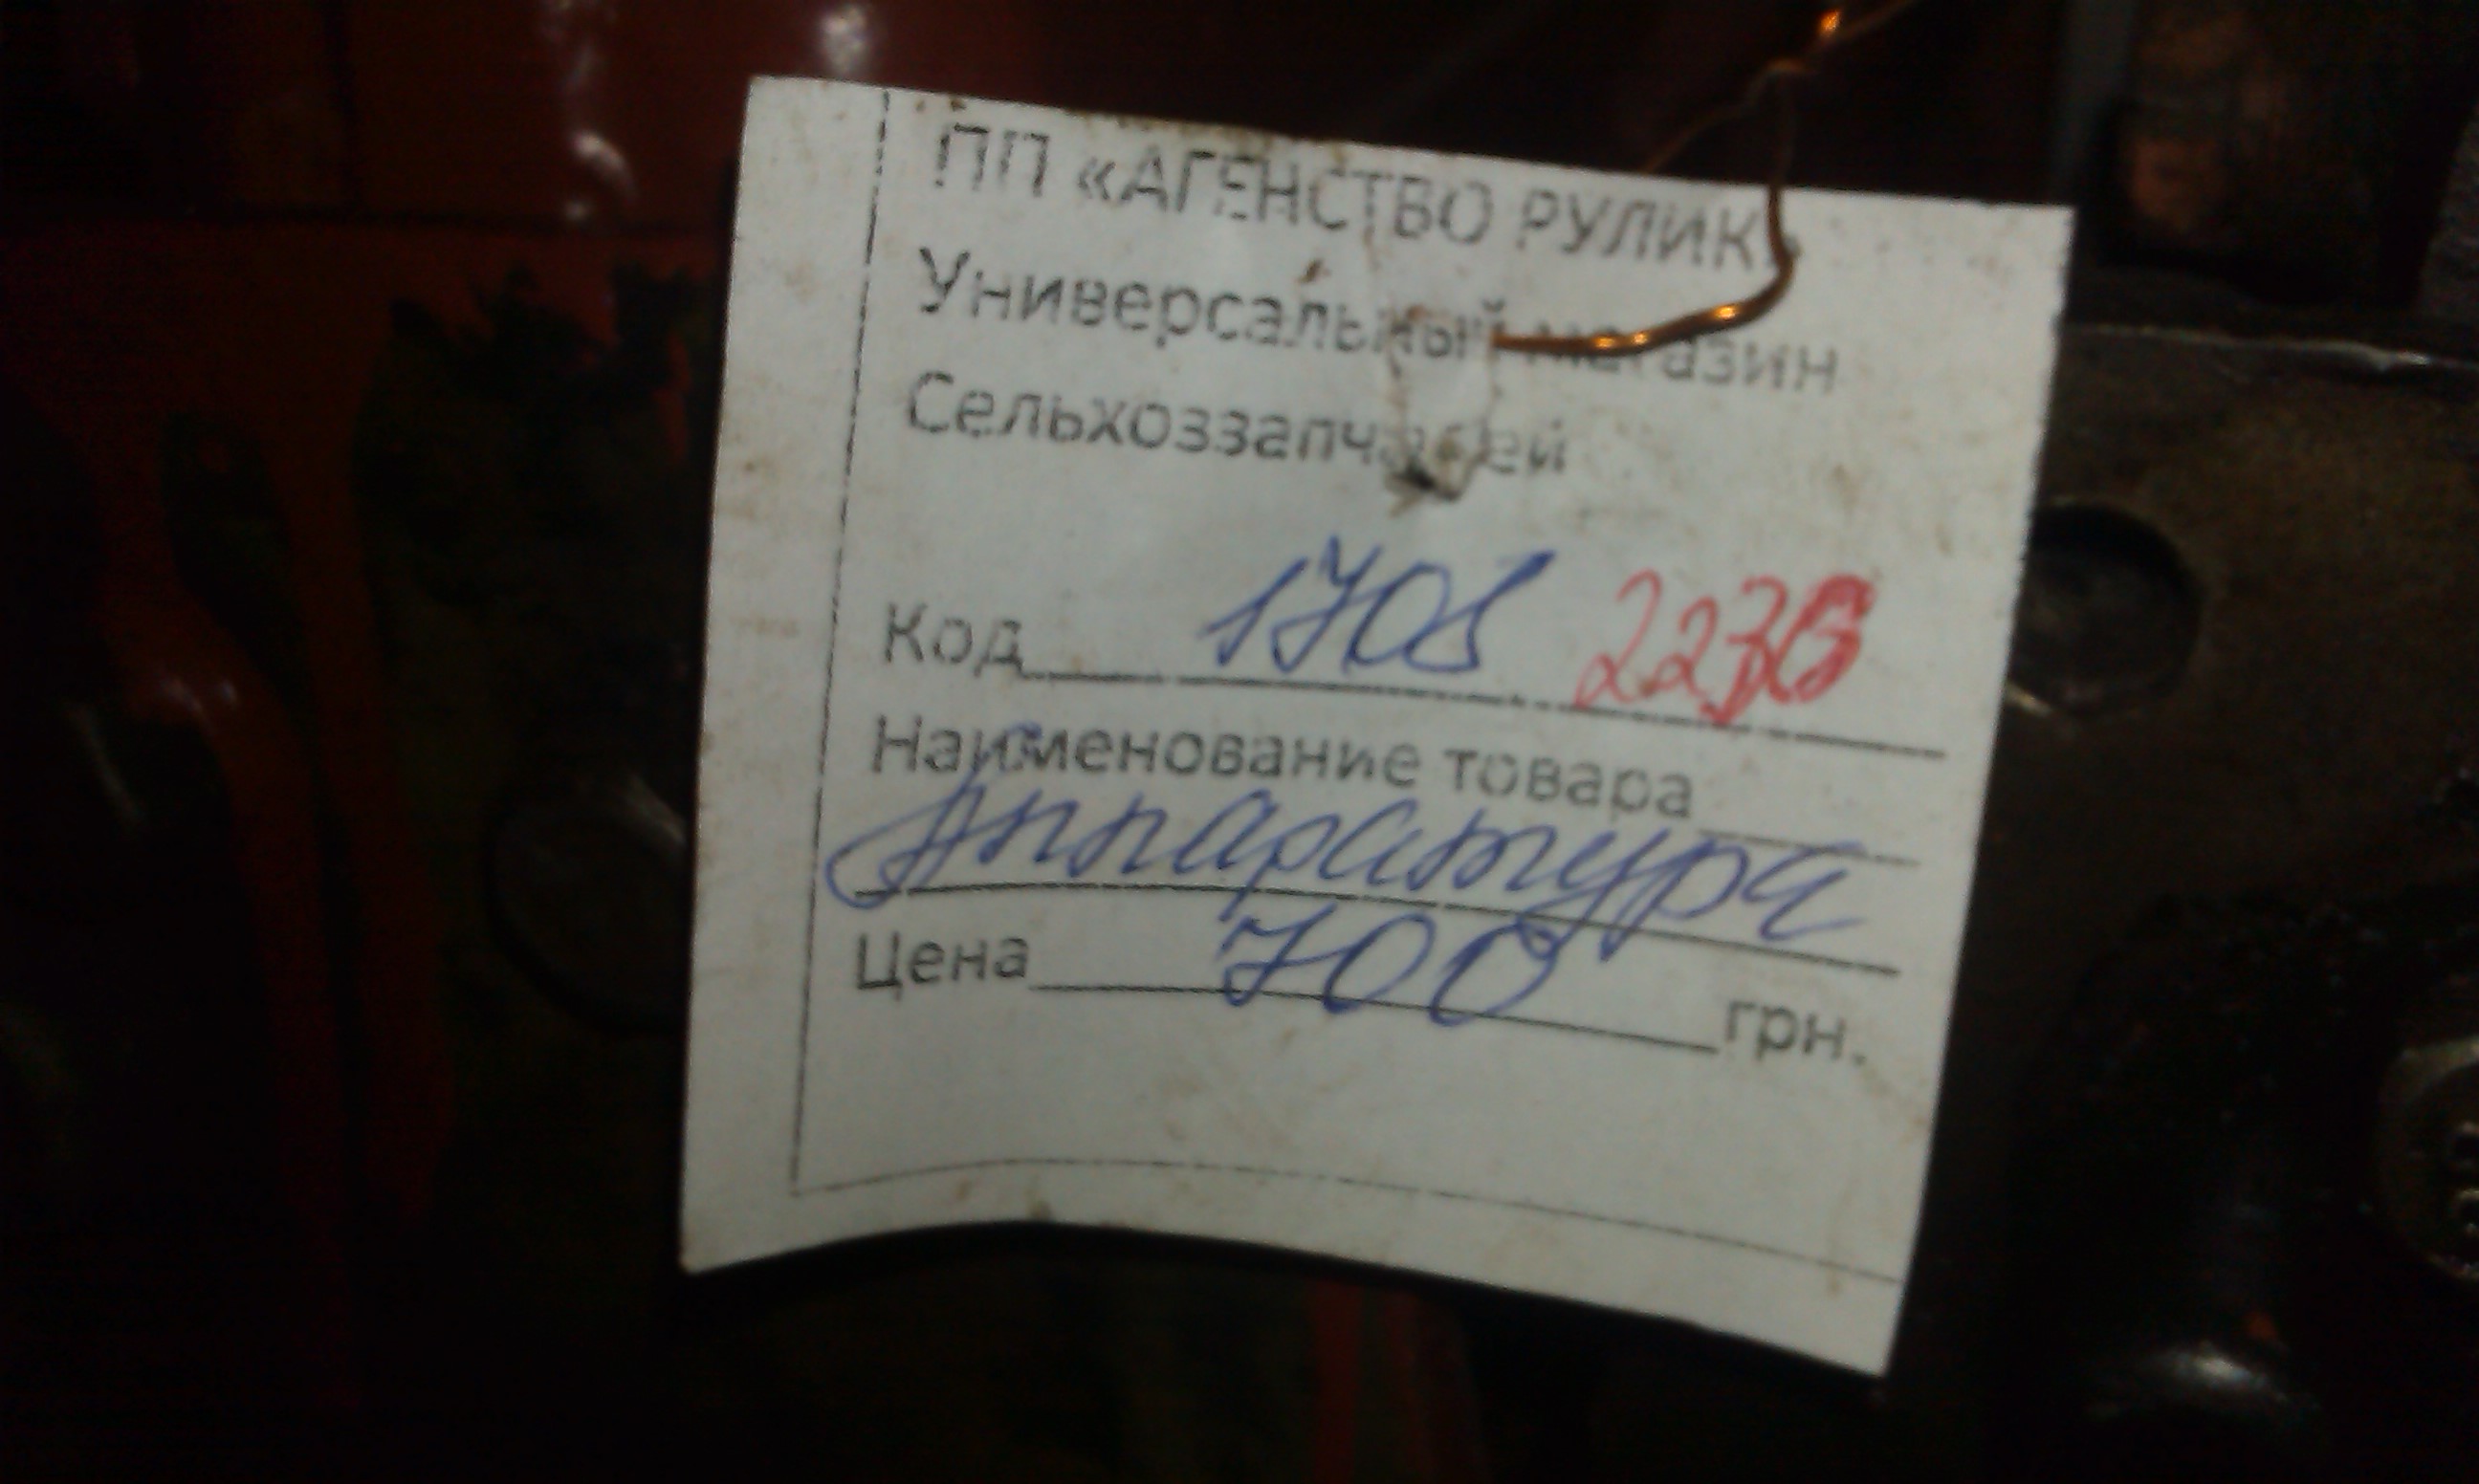 ПП «АГЕНСТВО РУЛИК»
Универсальный магазин
Сельхоззапчастей
Код 1708
Наименование товара
Аппаратура
Цена 700 грн.